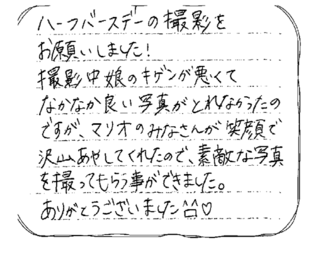 ハーフバースデーの撮影を
お願いしました!
撮影中娘のキゲンが悪くて
なかなか良い写真がとれなかったの
ですが、マリオのみなさんが笑顔で
沢山あやしてくれたので、素敵な写真
を撮ってもらう事ができました。
ありがとうございました^^♡